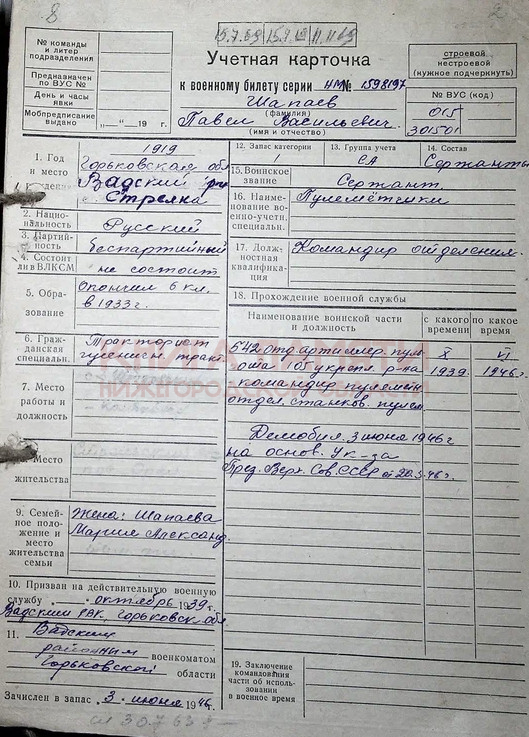 8
2
15.7.69 15.9.69 11.11.69
№ команды и литер подразделения
Предназначен по ВУС №
День и часы явки
Мобпредписание выдано „ — “ —19 г.
Учетная карточка
к военному билету серии НМ № 1598197
Шапаев
(фамилия)
Павел Васильевич.
(имя и отчество)
строевой
нестроевой
(нужное подчеркнуть)
№ ВУС (код)
015
301501
1. Год и место
1919
Горьковская обл
Вадский
с. Стрелка
2. Национальность
Русский
3. Партийность
беспартийный
4. Состоит ли в ВЛКСМ
не состоит
5. Образование
Окончил 6 кл.
в 1933 г.
6. Гражданская специальн.
Тракторист
гусеничн. трак.
7. Место работы и должность
Место жительства
9. Семейное положение и место жительства семьи
Жена: Шапаева
Мария Александ.
10. Призван на действительную военную
службу октябрь 1939 г.
Вадским РВК, Горьковск. обл
11. Вадским
районным военкоматом
Горьковской области
Зачислен в запас 3. июня 1946 г.
12. Запас категории
1
13. Группа учета
СА
14. Состав
Сержанты
15. Воинское звание
Сержант.
16. Наименование военно-учетн. специальн.
Пулеметчики
17. Должностная квалификация
Командир отделения.
18. Прохождение военной службы
Наименование воинской части и должность
с какого времени
по какое время
542 отд. артиллер. пул.
X
VI
105 укрепл. р-на
1939.
1946 г.
командир пулеметн.
отдел. станков. пулем.
Демобил. 3 июня 1946 г
на основ. Ук-за
През. Верх. Сов. СССР от 20.3.46 г.
19. Заключение командования части об использовании в военное время
КНИГА ПАМЯТИ